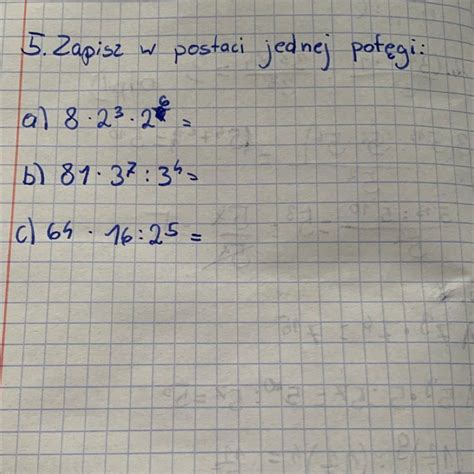 5. Zapisz w postaci jednej potęgi:
a) 8 · 2³ · 2⁶ =
b) 81 · 3⁷ : 3⁴ =
c) 64 · 16 : 2⁵ =